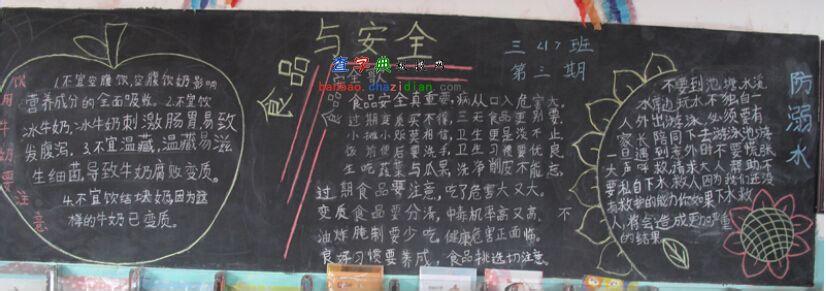 与安全
食品
三〈1〉班
第三期
查字典
banbao.chazidian.com
饮用牛奶要注意
1.不宜空腹饮,空腹饮奶影响
营养成分的全面吸收。2.不宜饮
冰牛奶,冰牛奶刺激肠胃易致
发腹泻。3.不宜温藏,温藏易滋
生细菌,导致牛奶腐败变质。
4.不宜饮结块奶因为这
样的牛奶已变质。
食品安全真重要,病从口入危害大。
过期变质不
小摊小贩莫相信,卫生更是谈不上
饭前便后要洗手,卫生习惯要优良
生吃蔬菜与瓜果,洗净削皮不能忘
过期食品要注意,吃了危害大又大。
变质食品要分清,中毒机率高又高。不
油炸腌制要少吃,健康危害正面临。
良好习惯要养成,食品挑选切注意。
防溺水
不要到池塘、水沆
水库边玩水不独自一
人外出游泳,必须要有
家长陪同下去游泳池游
一旦遇到意外时不要慌张
大声呼救,请求大人帮助不
要私自下水救人因为我们还没
有救护的能力你如果下水救
人,将会造成更加严重
的结果